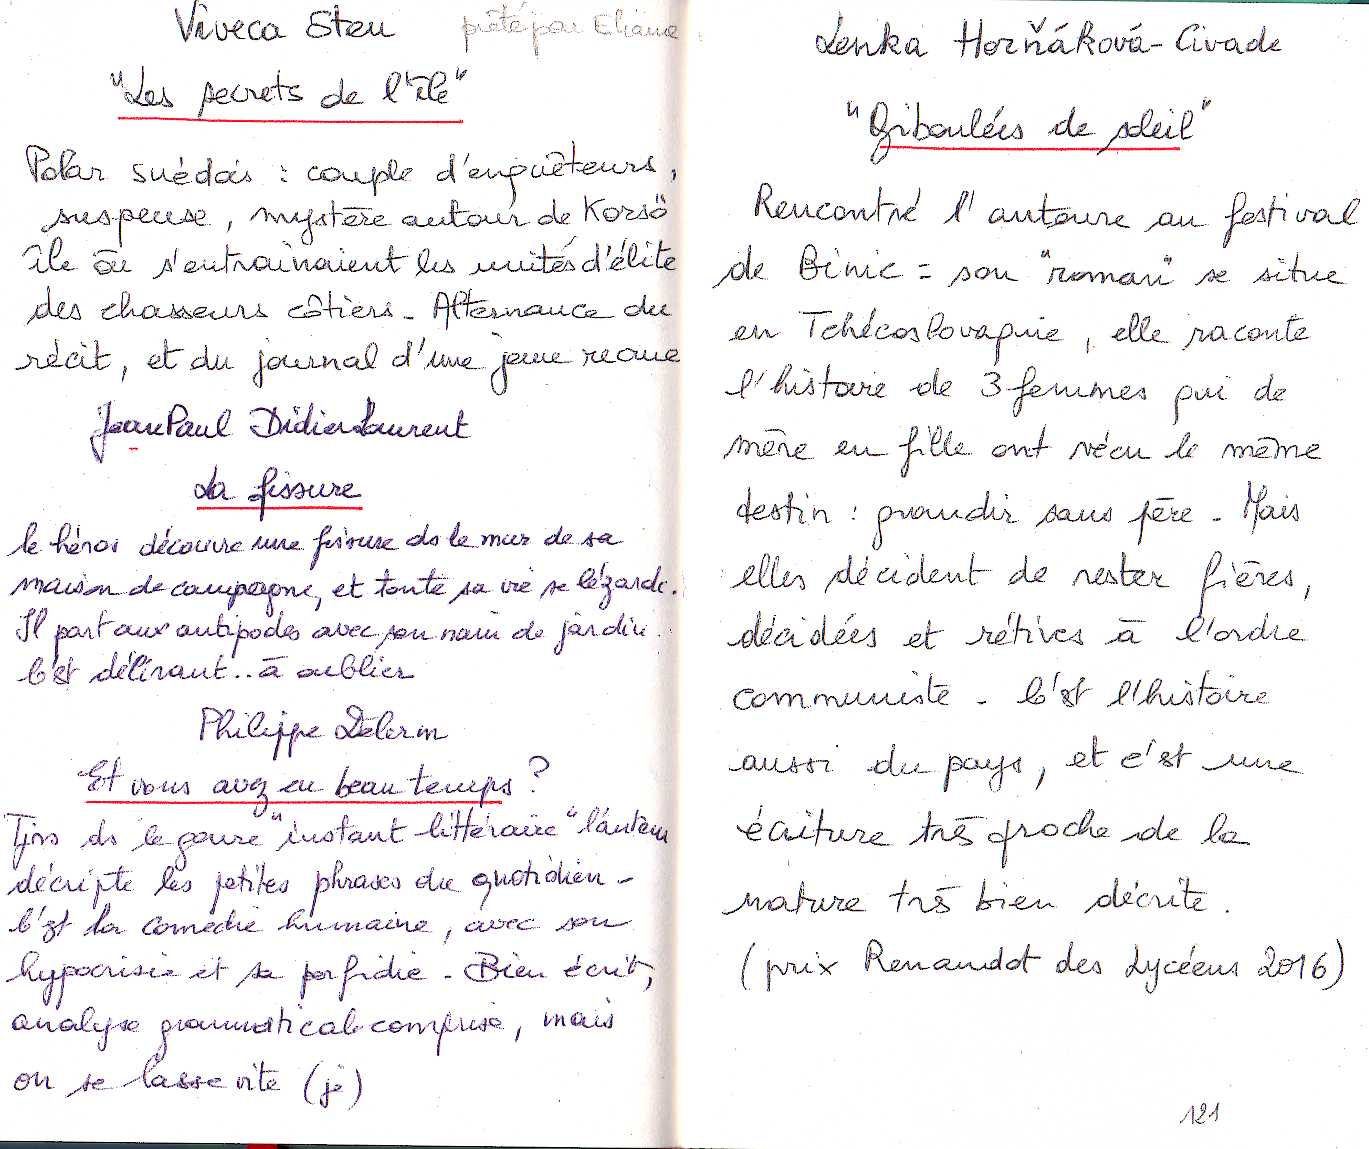 Viveca Sten prêté par Eliane
"Les secrets de l'île"
Polar suédois : couple d'enquêteurs,
suspense, mystère autour de Korsö
île où s'entrainaient les unités d'élite
des chasseurs côtiers - Alternance du
récit, et du journal d'une jeune recrue
Jean Paul Didierlaurent
La fissure
le héros découvre une fissure ds le mur de sa
maison de campagne, et toute sa vie se lézarde.
Il part aux antipodes avec son nain de jardin.
C'est délirant .. à oublier
Philippe Delerm
Et vous avez eu beau temps ?
Tjrs ds le genre "instant littéraire" l'auteur
décripte les petites phrases du quotidien -
C'est la comédie humaine, avec son
hypocrisie et sa perfidie - Bien écrit,
analyse grammaticale comprise, mais
on se lasse vite (je)
Lenka Horňáková-Civade
"Giboulées de soleil"
Rencontré l'auteure au festival
de Binic = son "roman" se situe
en Tchécoslovaquie, elle raconte
l'histoire de 3 femmes qui de
mère en fille ont vécu le même
destin : grandir sans père - Mais
elles décident de rester fières,
décidées et rétives à l'ordre
communiste - C'est l'histoire
aussi du pays, et c'est une
écriture très proche de la
nature très bien décrite.
(prix Renaudot des Lycéens 2016)
121